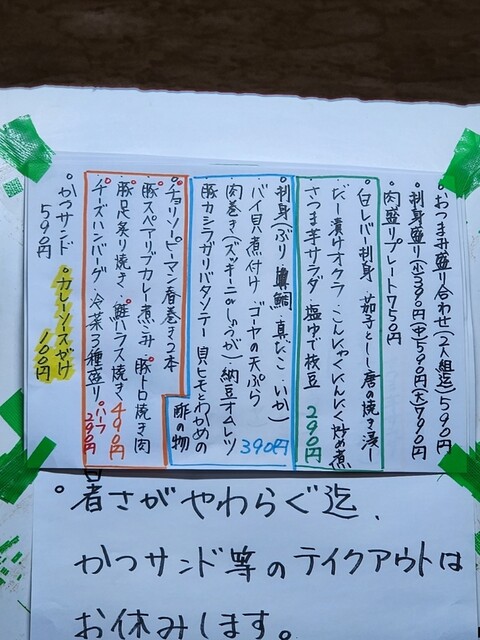 。おつまみ盛り合わせ(2人組迄)590円
。刺身盛り(小)390円(中)590円(大)790円
。肉盛りプレート750円
白レバー刺身 茄子としし唐の焼き浸し
だし漬けオクラ こんにゃくにんにく炒め煮
さつま芋サラダ 塩ゆで枝豆 290円
刺身(ぶり・真鯛・真だこ・いか)
バイ貝煮付け ゴーヤの天ぷら
肉巻き(ズッキーニ or しょうが) 納豆オムレツ 390円
豚カシラガリバタソテー 貝ヒモとわかめの酢の物
チョリソーピーマン春巻き2本
豚スペアリブカレー煮込み 豚トロ焼き肉
豚足炙り焼き 鮭ハラス焼き 490円
チーズハンバーグ 冷菜3種盛り 。ハーフ290円
。かつサンド 590円 。カレーソースがけ100円
。暑さがやわらぐ迄、
かつサンド等のテイクアウトは
お休みします。